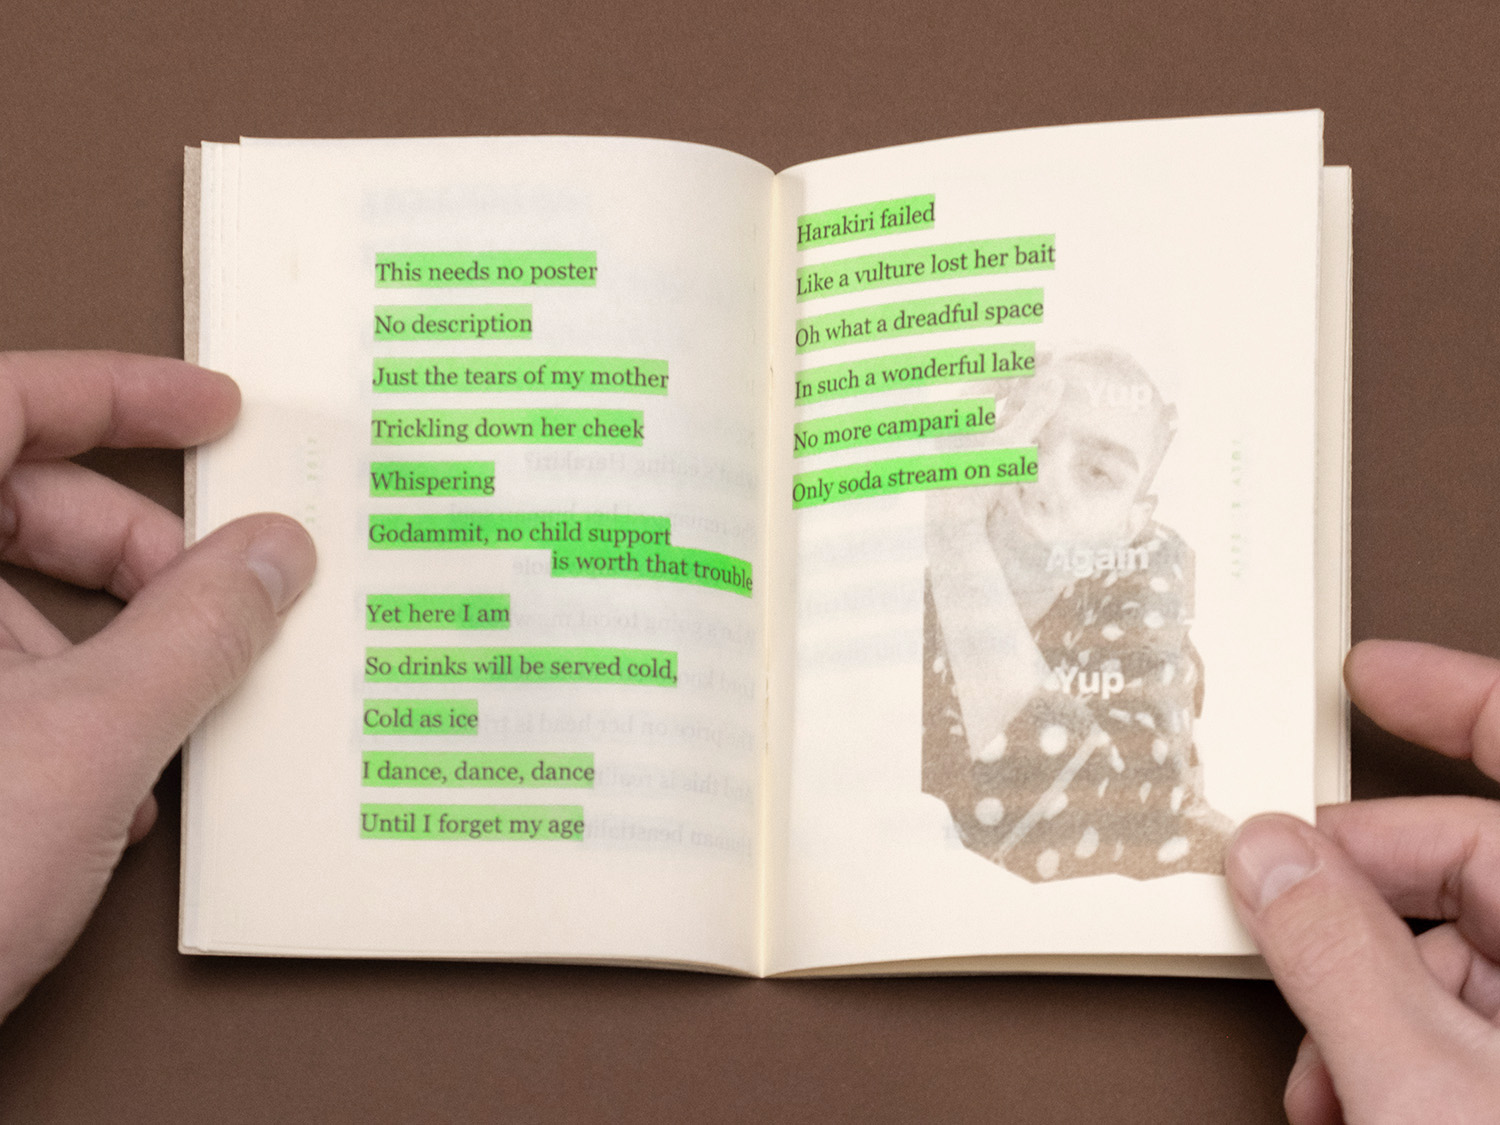 This needs no poster
No description
Just the tears of my mother
Trickling down her cheek
Whispering
Godammit, no child support
is worth that trouble
Yet here I am
So drinks will be served cold,
Cold as ice
I dance, dance, dance
Until I forget my age
Harakiri failed
Like a vulture lost her bait
Oh what a dreadful space
In such a wonderful lake
No more campari ale
Only soda stream on sale
Yup
Again
Yup